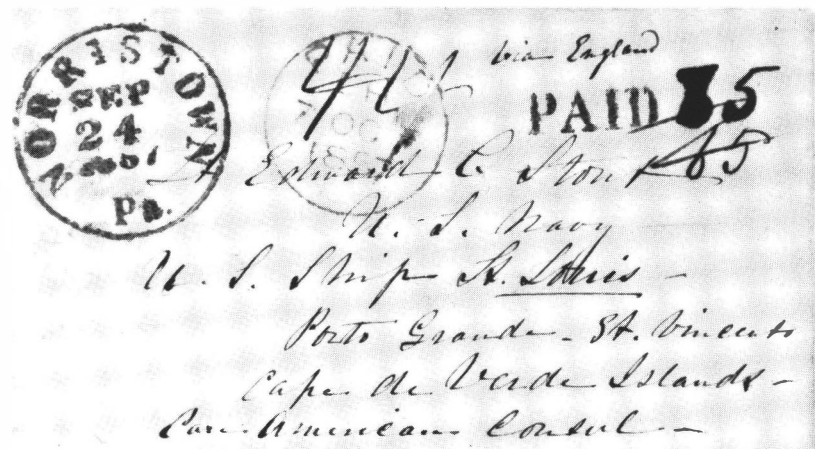 NORRISTOWN
SEP
24
Pa.
PAID
OC
via England
PAID 35
45
Lt Edward C. Stout
U. S. Navy
U. S. Ship St. Louis -
Porto Grande - St. Vincents
Cape de Verde Islands -
Care American Consul -